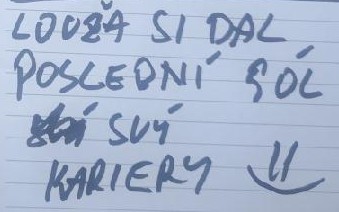 LOUŽA SI DAL
POSLEDNÍ GÓL
SVÝ
KARIERY